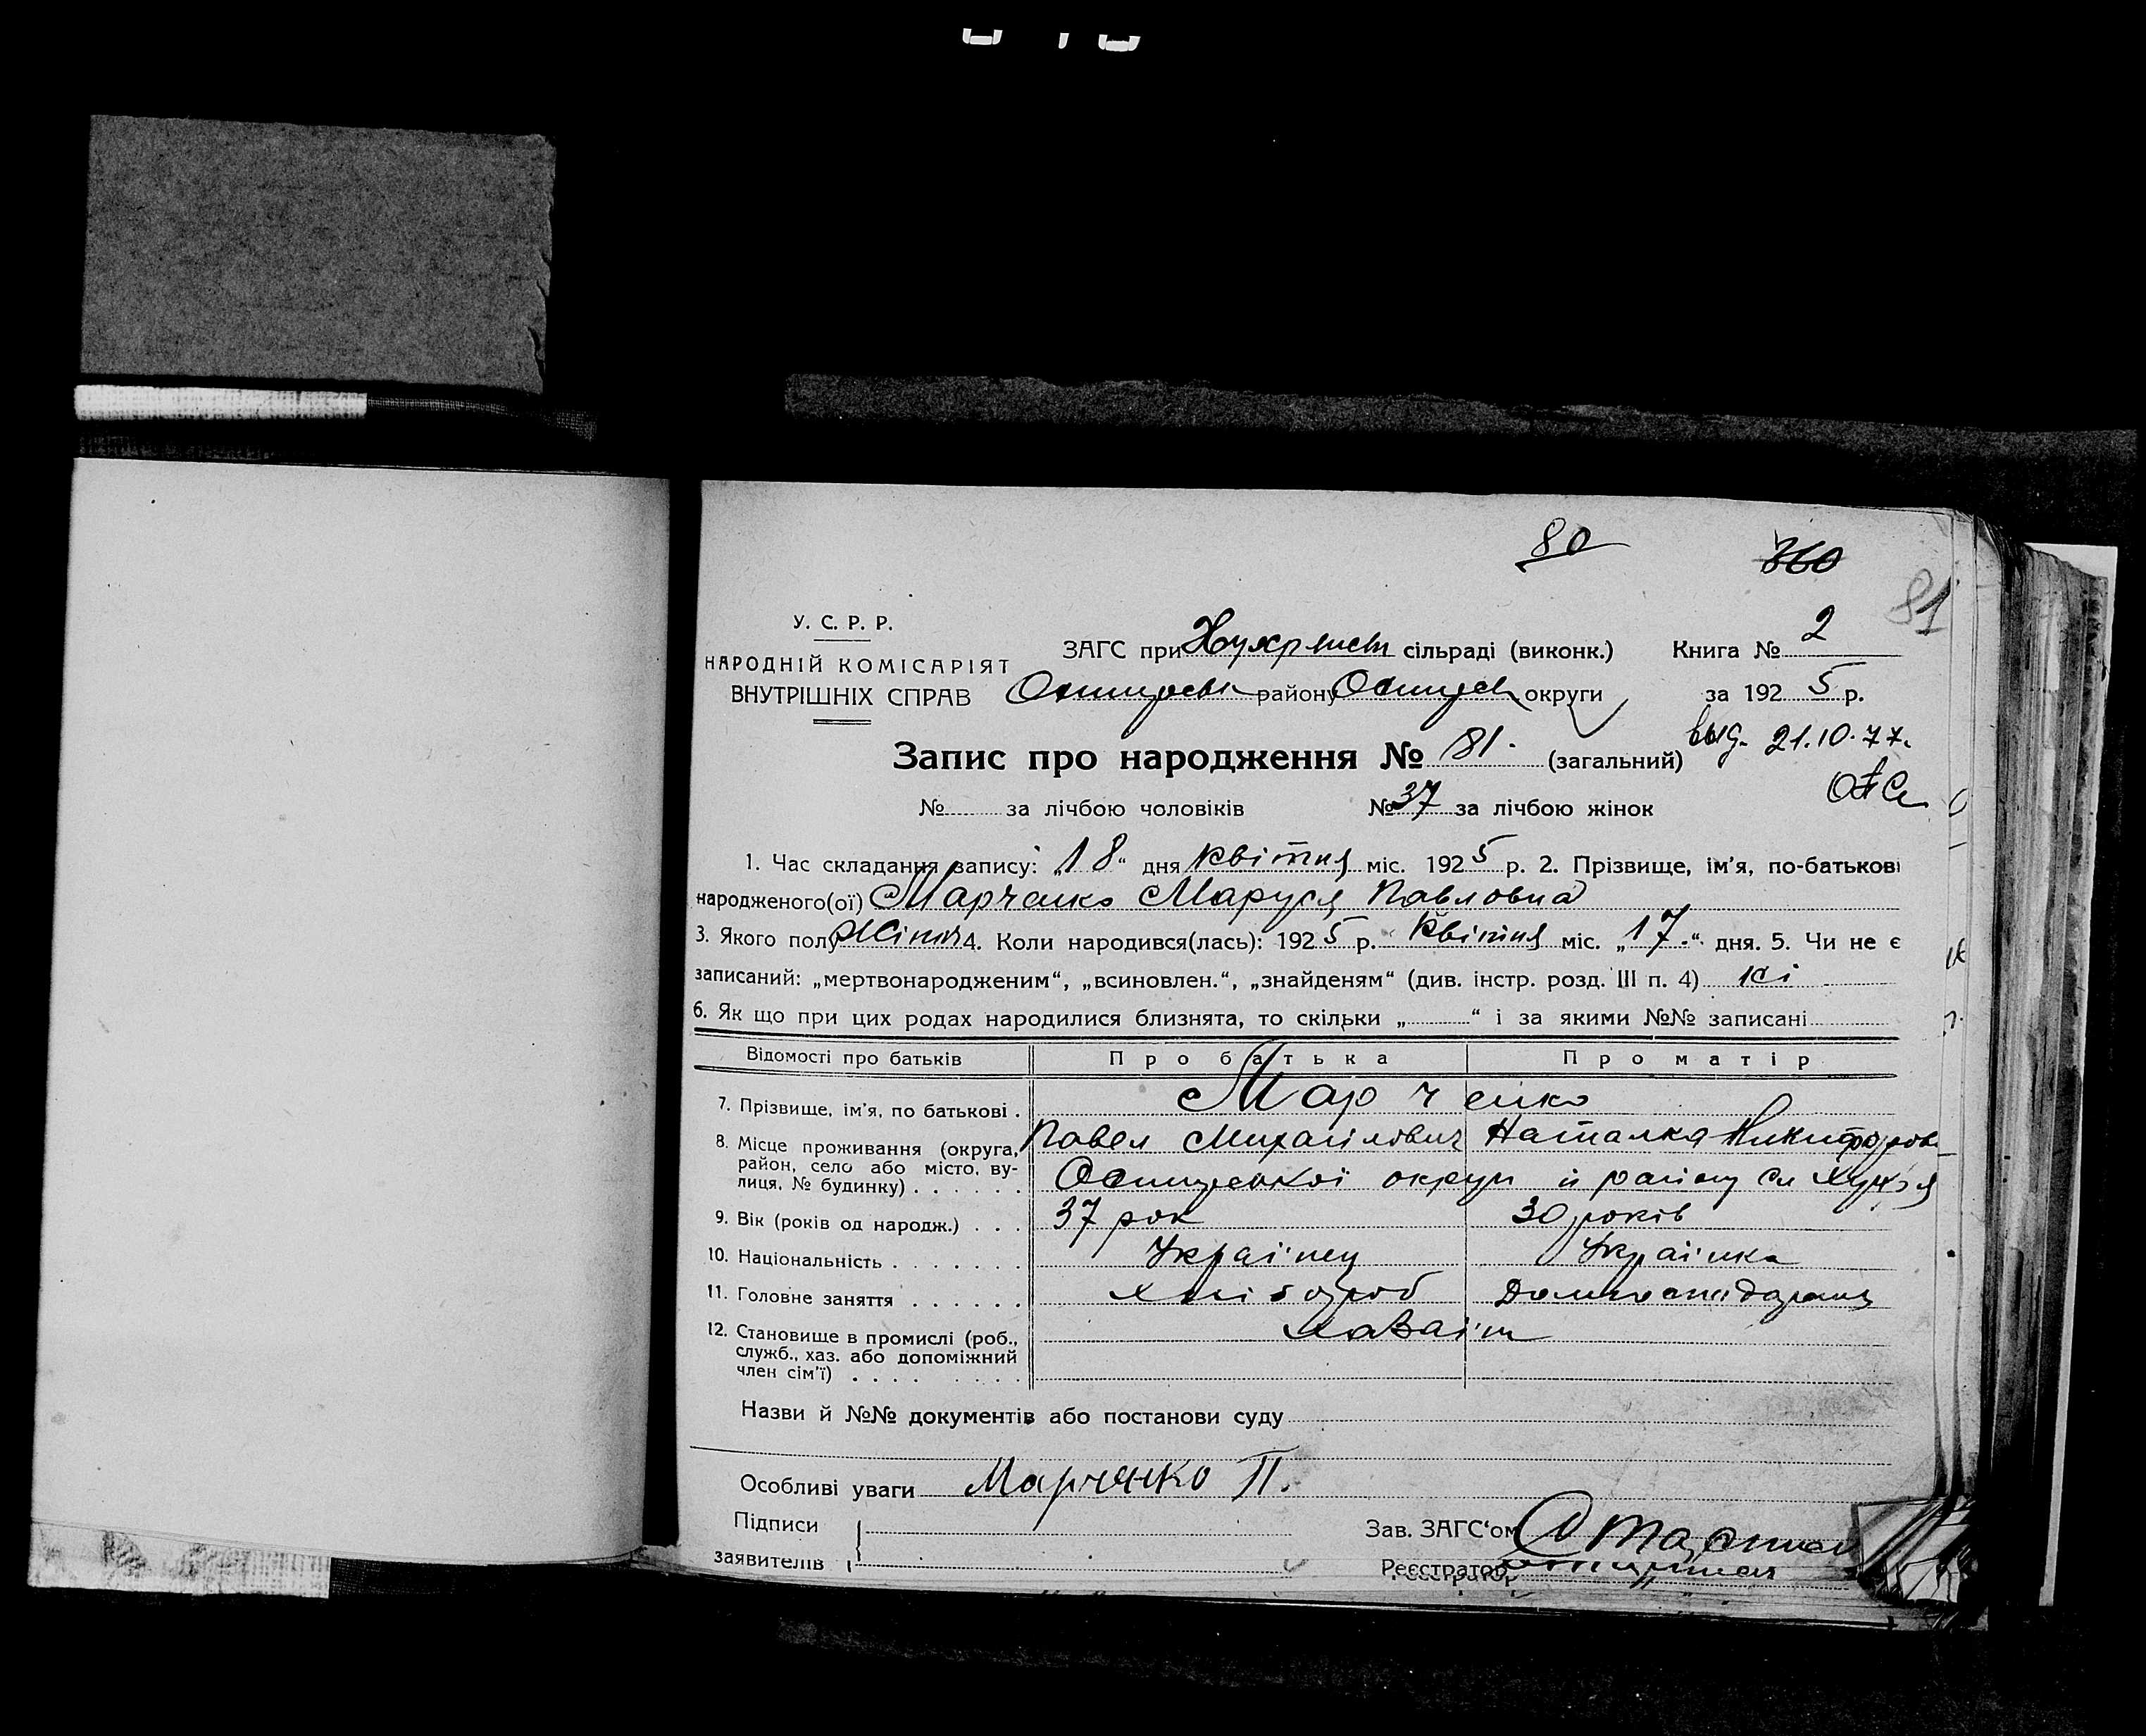 80 360
81
У. С. Р. Р.
НАРОДНІЙ КОМІСАРІЯТ
ВНУТРІШНІХ СПРАВ
ЗАГС при сільраді (виконк.) Книга № 2
району округи за 1925 р.
Запис про народження № 81. (загальний) выд. 21.10.77.
№ за лічбою чоловіків № 37 за лічбою жінок
1. Час складання запису: „18“ дня квітня міс. 1925 р. 2. Прізвище, ім'я, по-батькові
народженого(ої) Марченко Маруся Павловна
3. Якого полу 4. Коли народився(лась): 1925 р. квітня міс. „17.“ дня. 5. Чи не є
записаний: „мертвонародженим“, „всиновлен.“, „знайденям“ (див. інстр. розд. III п. 4) ні
6. Як що при цих родах народилися близнята, то скільки „ “ і за якими №№ записані
Відомості про батьків Про батька Про матір
7. Прізвище, ім'я, по батькові . Марченко
8. Місце проживання (округа, Павел Михайлович Наталка
район, село або місто, ву-
лиця, № будинку) . . . . . . округи й району
9. Вік (років од народж.) . . . 37 рок 30 років
10. Національність . . . . . . . Українец Українка
11. Головне заняття . . . . . . хлібороб
12. Становище в промислі (роб.,
служб., хаз. або допоміжний
член сім'ї) . . . . . . . .
Назви й №№ документів або постанови суду
Особливі уваги Марченко П.
Підписи
заявителів
Зав. ЗАГС'ом
Реєстратор